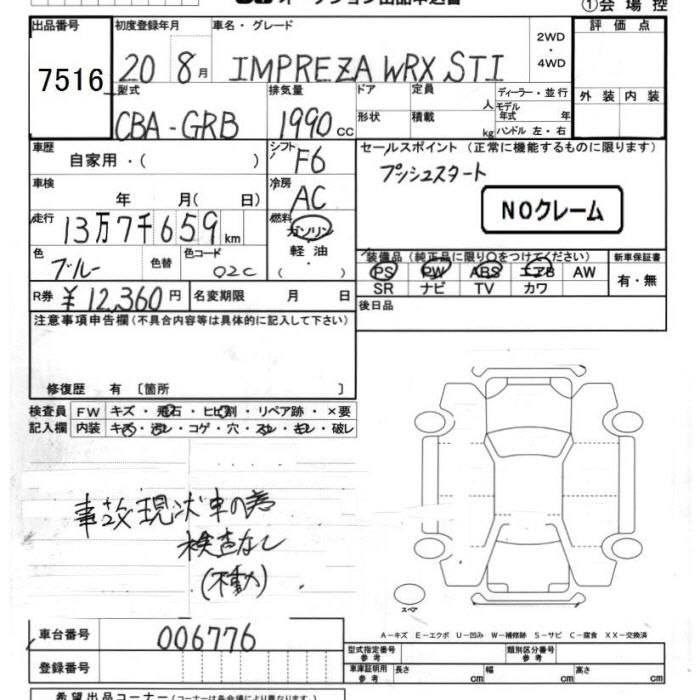 オークション出品申込書
①会場控
出品番号 初度登録年月 車名・グレード 評価点
7516 20 8月 IMPREZA WRX STI 2WD・4WD
外装 内装
型式 排気量 ドア 定員 人 ディーラー・並行
CBA-GRB 1990 CC 形状 積載 kg モデル年式 年
ハンドル 左・右
車歴 自家用・( ) シフト F6 セールスポイント (正常に機能するものに限ります)
プッシュスタート
車検 年 月( 日) 冷房 AC
NOクレーム
走行 13万7千659km 燃料 ガソリン
軽油・( )
色 ブルー 色替 色コード 02C
装備品 (純正品に限り○をつけてください) 新車保証書
PS PW ABS エアB AW 有・無
SR ナビ TV カワ
R券 ¥12,360円 名変期限 月 日 後日品
注意事項申告欄 (不具合内容等は具体的に記入して下さい)
修復歴 有 〔箇所 〕
検査員 FW キズ・飛石・ヒビ割・リペア跡・×要
記入欄 内装 キズ・汚レ・コゲ・穴・スレ・キレ・破レ
事故現状車の為
検査なし
(不動)
スペア
A-キズ E-エクボ U-凹み W-補修跡 S-サビ C-腐食 XX-交換済
車台番号 006776
型式指定番号 参考 類別区分番号 参考
登録番号
車庫証明用 参考 長さ cm 幅 cm 高さ cm
希望出品コーナー (コーナー名は各会場により異なります)